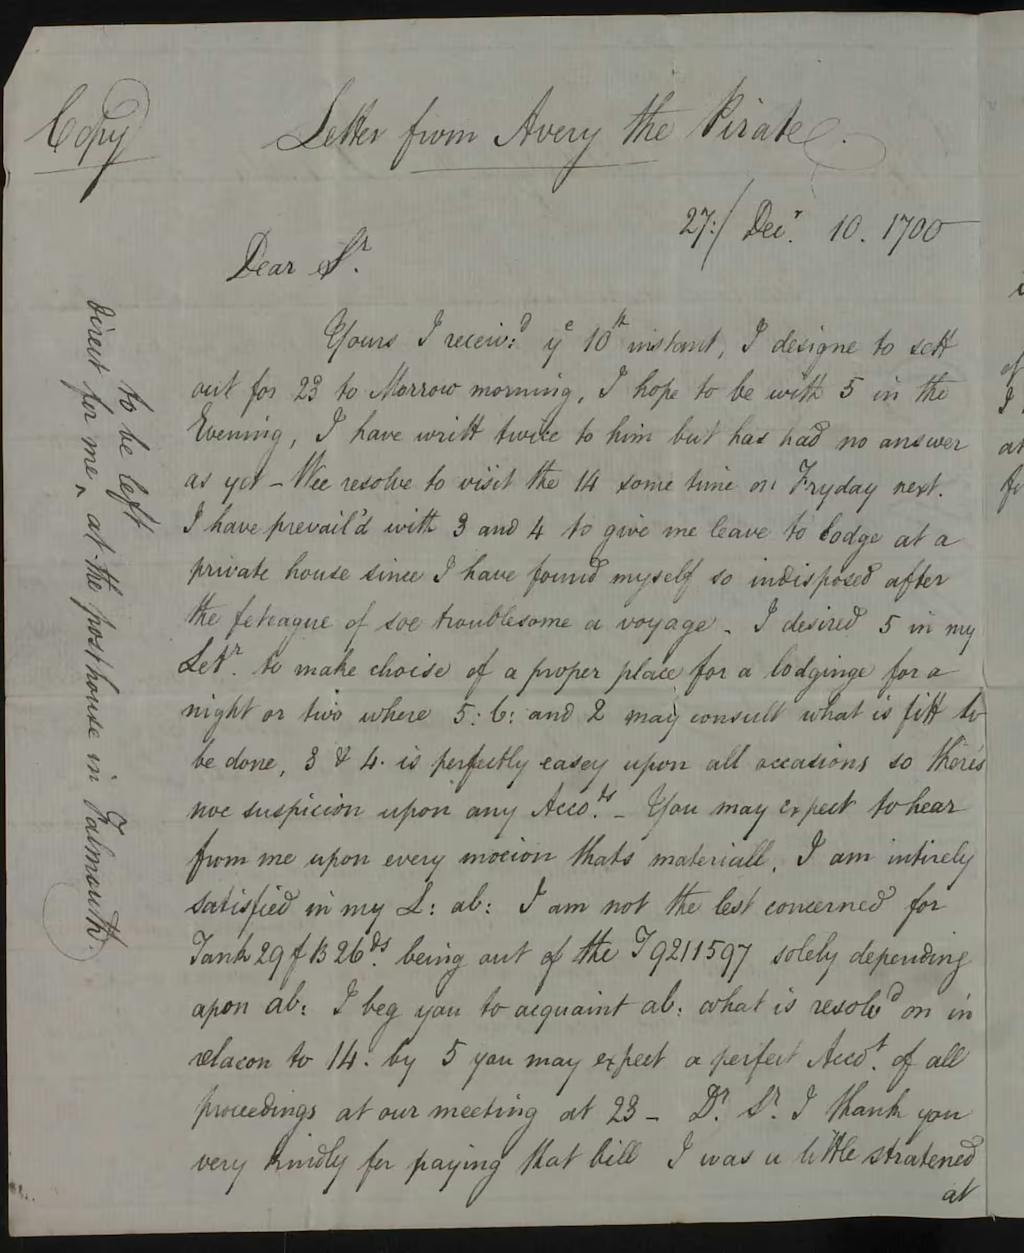 Copy
Letter from Avery the Pirate.
27:/ Decr. 10. 1700
Dear Sr.
Yours I receiv:d ye 10th instant, I designe to sett
out for 23 to Morrow morning, I hope to be with 5 in the
Evening, I have writt twice to him but has had no answer
as yet – Wee resolve to visit the 14 some time on Fryday next.
I have prevail'd with 3 and 4 to give me leave to lodge at a
private house since I have found myself so indisposed after
the feteague of soe troublesome a voyage – I desired 5 in my
Lettr. to make choise of a proper place for a lodginge for a
night or two where 5: 6: and 2 may consult what is fitt to
be done, 3 & 4. is perfectly easey upon all occasions so there's
noe suspicion upon any Accots. – You may expect to hear
from me upon every mocion thats materiall. I am intirely
satisfied in my L: ab: I am not the lest concerned for
Tank 29 f B 26ds. being out of the T9211597 solely depending
upon ab: I beg you to acquaint ab: what is resolvd on in
relacon to 14. by 5 you may expect a perfect Accot. of all
proceedings at our meeting at 23 – Dr. Sr. I thank you
very kindly for paying that bill I was a little stratened
at
to be left
Direct for me ‸ at the posthouse in Falmouth.